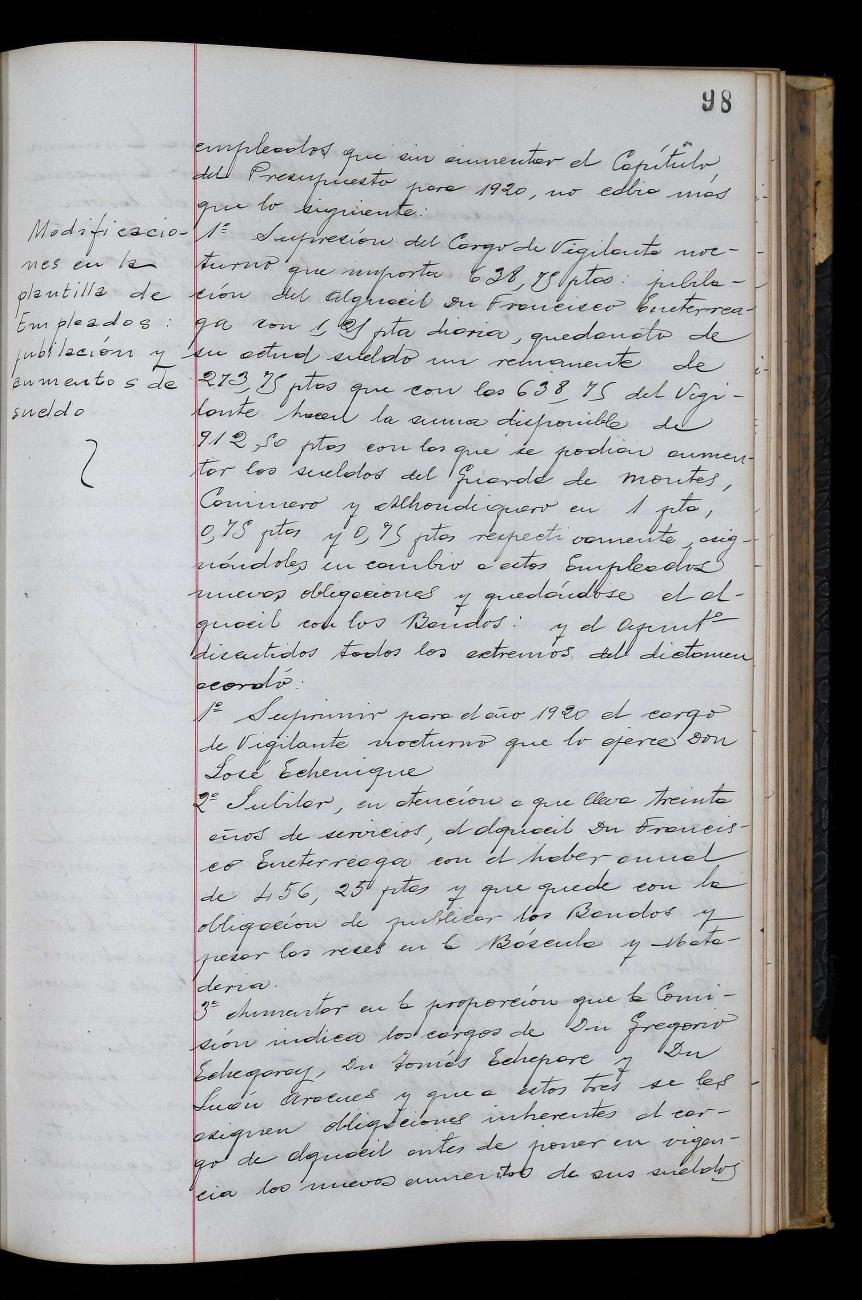 98
empleados que sin aumentar el Capítulo
del Presupuesto para 1920, no cabia más
que lo siguiente:
Modificacio-
nes en la
plantilla de
Empleados:
jubilación y
aumentos de
sueldo
1º Supresión del Cargo de Vigilante noc-
turno que importa 638,75 ptas: jubila-
ción del alguacil Dn Francisco Eneterrea-
ga con 1,25 pta diaria, quedando de
su actual sueldo un remanente de
273,75 ptas que con las 638,75 del Vigi-
lante hacen la suma disponible de
912,50 ptas con las que se podian aumen-
tar los sueldos del Guarda de montes,
Caminero y Alhondiguero en 1 pta,
0,75 ptas y 0,75 ptas respectivamente, asig-
nándoles en cambio a estos Empleados
nuevas obligaciones y quedándose el al-
guacil con los Bandos: y el Ayuntº
discutidos todos los extremos del dictamen
acordó:
1º Suprimir para el año 1920 el cargo
de Vigilante nocturno que lo ejerce Don
José Echenique
2º Jubilar, en atención a que lleva treinta
años de servicios, al alguacil Dn Francis-
co Eneterreaga con el haber anual
de 456,25 ptas y que quede con la
obligación de publicar los Bandos y
pesar las reses en la Báscula y Mata-
deria.
3º Aumentar en la proporción que la Comi-
sión indica los cargos de Dn Gregorio
Echegaray, Dn Tomás Echepare y Dn
Juán Aracues y que a estos tres se les
asignen obligaciones inherentes al car-
go de alguacil antes de poner en vigen-
cia los nuevos aumentos de sus sueldos